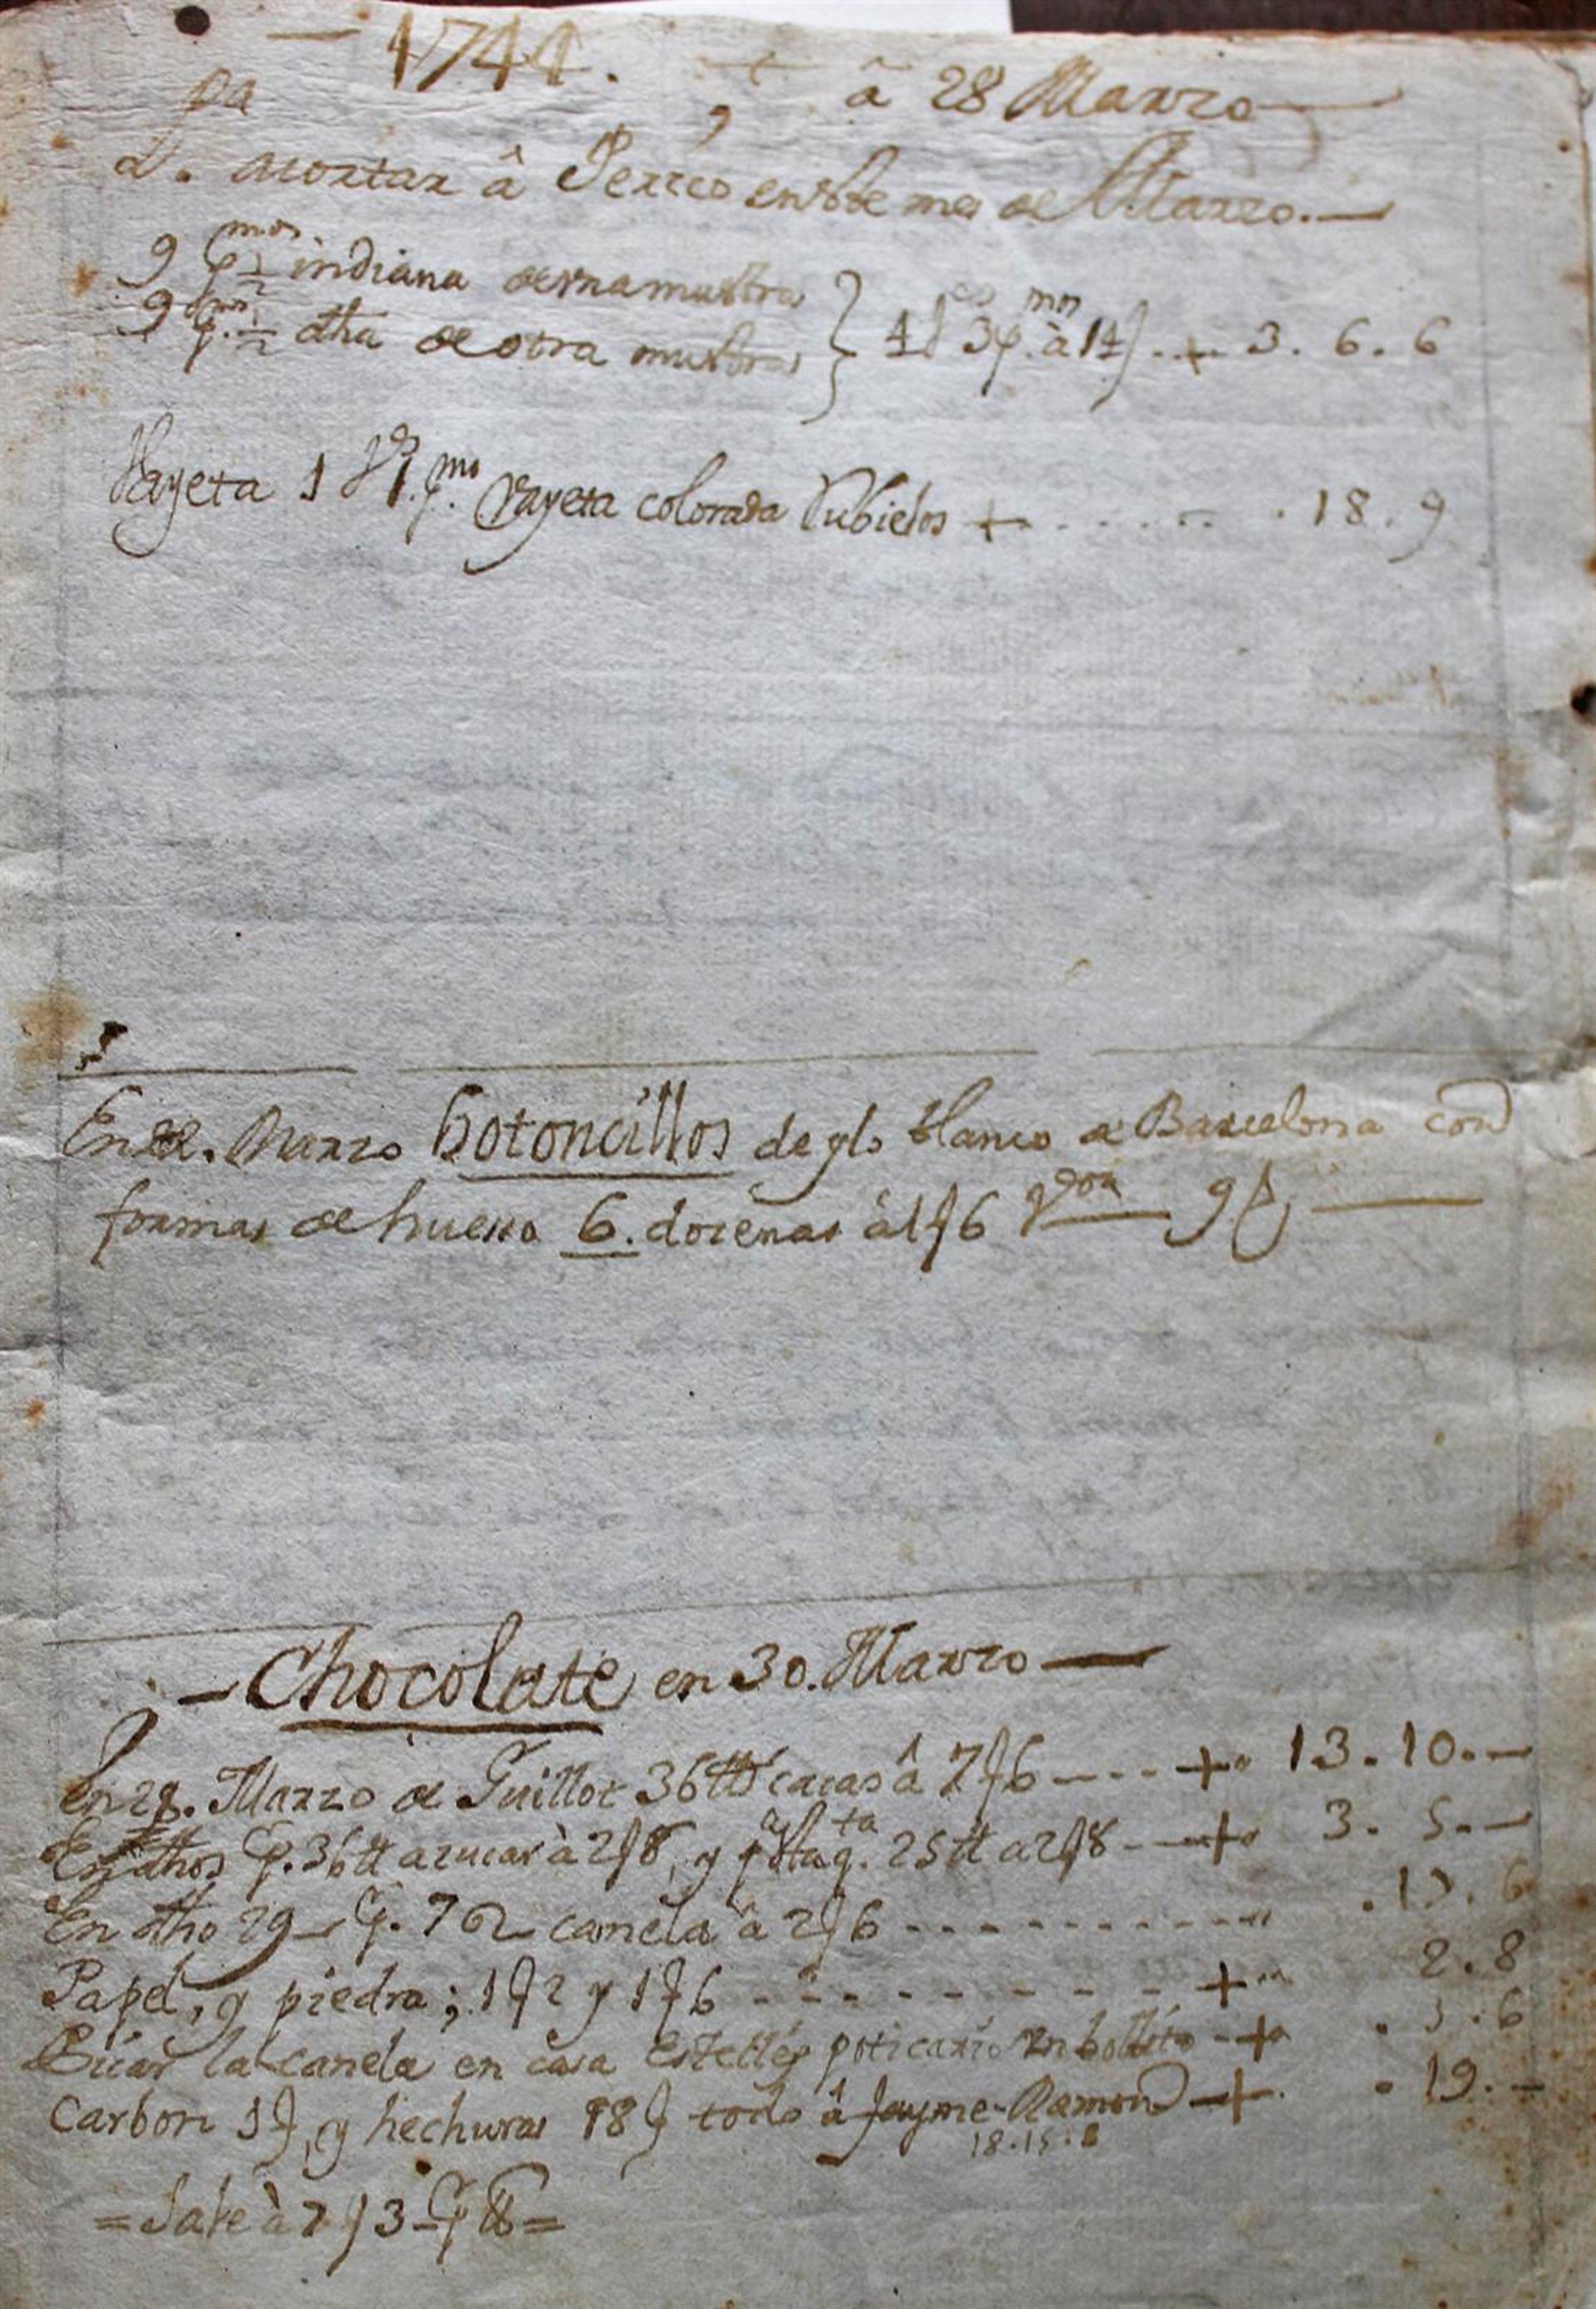 1744. + â 28 Marzo
Pa
D. acortar â Perico en este mes de Marzo.
9 pmos ½ indiana de una muestra
9 pmos ½ dha de otra muestra } 4 3 p. mos à 14 + 3. 6. 6
Vayeta 1 1 pmo Vayeta colorada Rubielos + . 18. 9
En 22. Marzo botoncillos de ylo blanco de Barcelona con
formas de hueso 6. docenas à 1 6 9
- Chocolate en 30. Marzo -
En 28. Marzo de Guillot 36 tt cacao â 7 6 + 13. 10. -
En dhos p. 36 tt azucar à 2 8, y 25 tt a 2 8 + 3. 5. -
En dho 29 - p. 7 canela â 2 6 . 17. 6
Papel, y piedra; 1 2 y 1 6 + 2. 8
Picar la canela en casa Estelles poticario + . 6
Carbon 1, y hechuras 18 todo â Jayme Ramon + . 19. -
18. 15. 8
= Sale à 7 3 p tt =